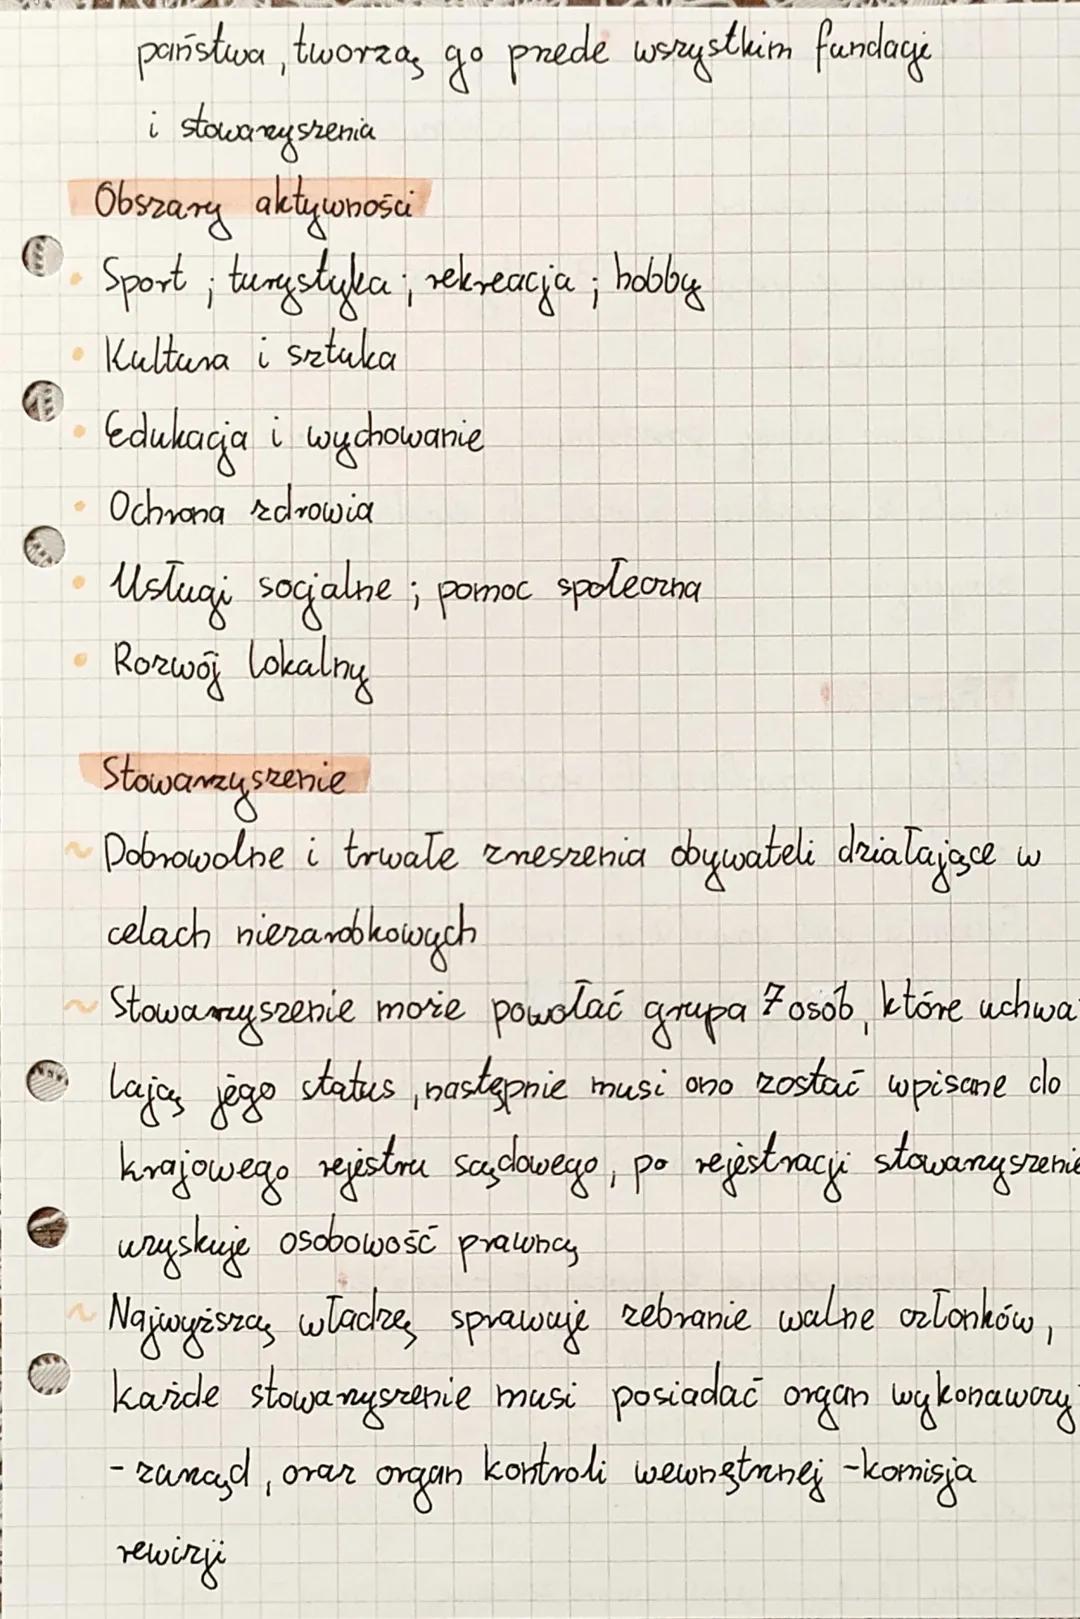 państwa, tworzą go przede wszystkim fundacje
i stowarzyszenia
Obszary aktywności
• Sport ; turystyka ; rekreacja ; hobby
• Kultura i sztuka
• Edukacja i wychowanie
• Ochrona zdrowia
• Usługi socjalne ; pomoc społeczna
• Rozwój lokalny
Stowarzyszenie
~ Dobrowolne i trwałe zrzeszenia obywateli działające w
celach niezarobkowych
~ Stowarzyszenie może powołać grupa 7 osób, które uchwa-
lają jego status, następnie musi ono zostać wpisane do
krajowego rejestru sądowego, po rejestracji stowarzyszenie
uzyskuje osobowość prawną
~ Najwyższą władzę sprawuje zebranie walne członków,
każde stowarzyszenie musi posiadać organ wykonawczy
- zarząd, oraz organ kontroli wewnętrznej - komisja
rewizji